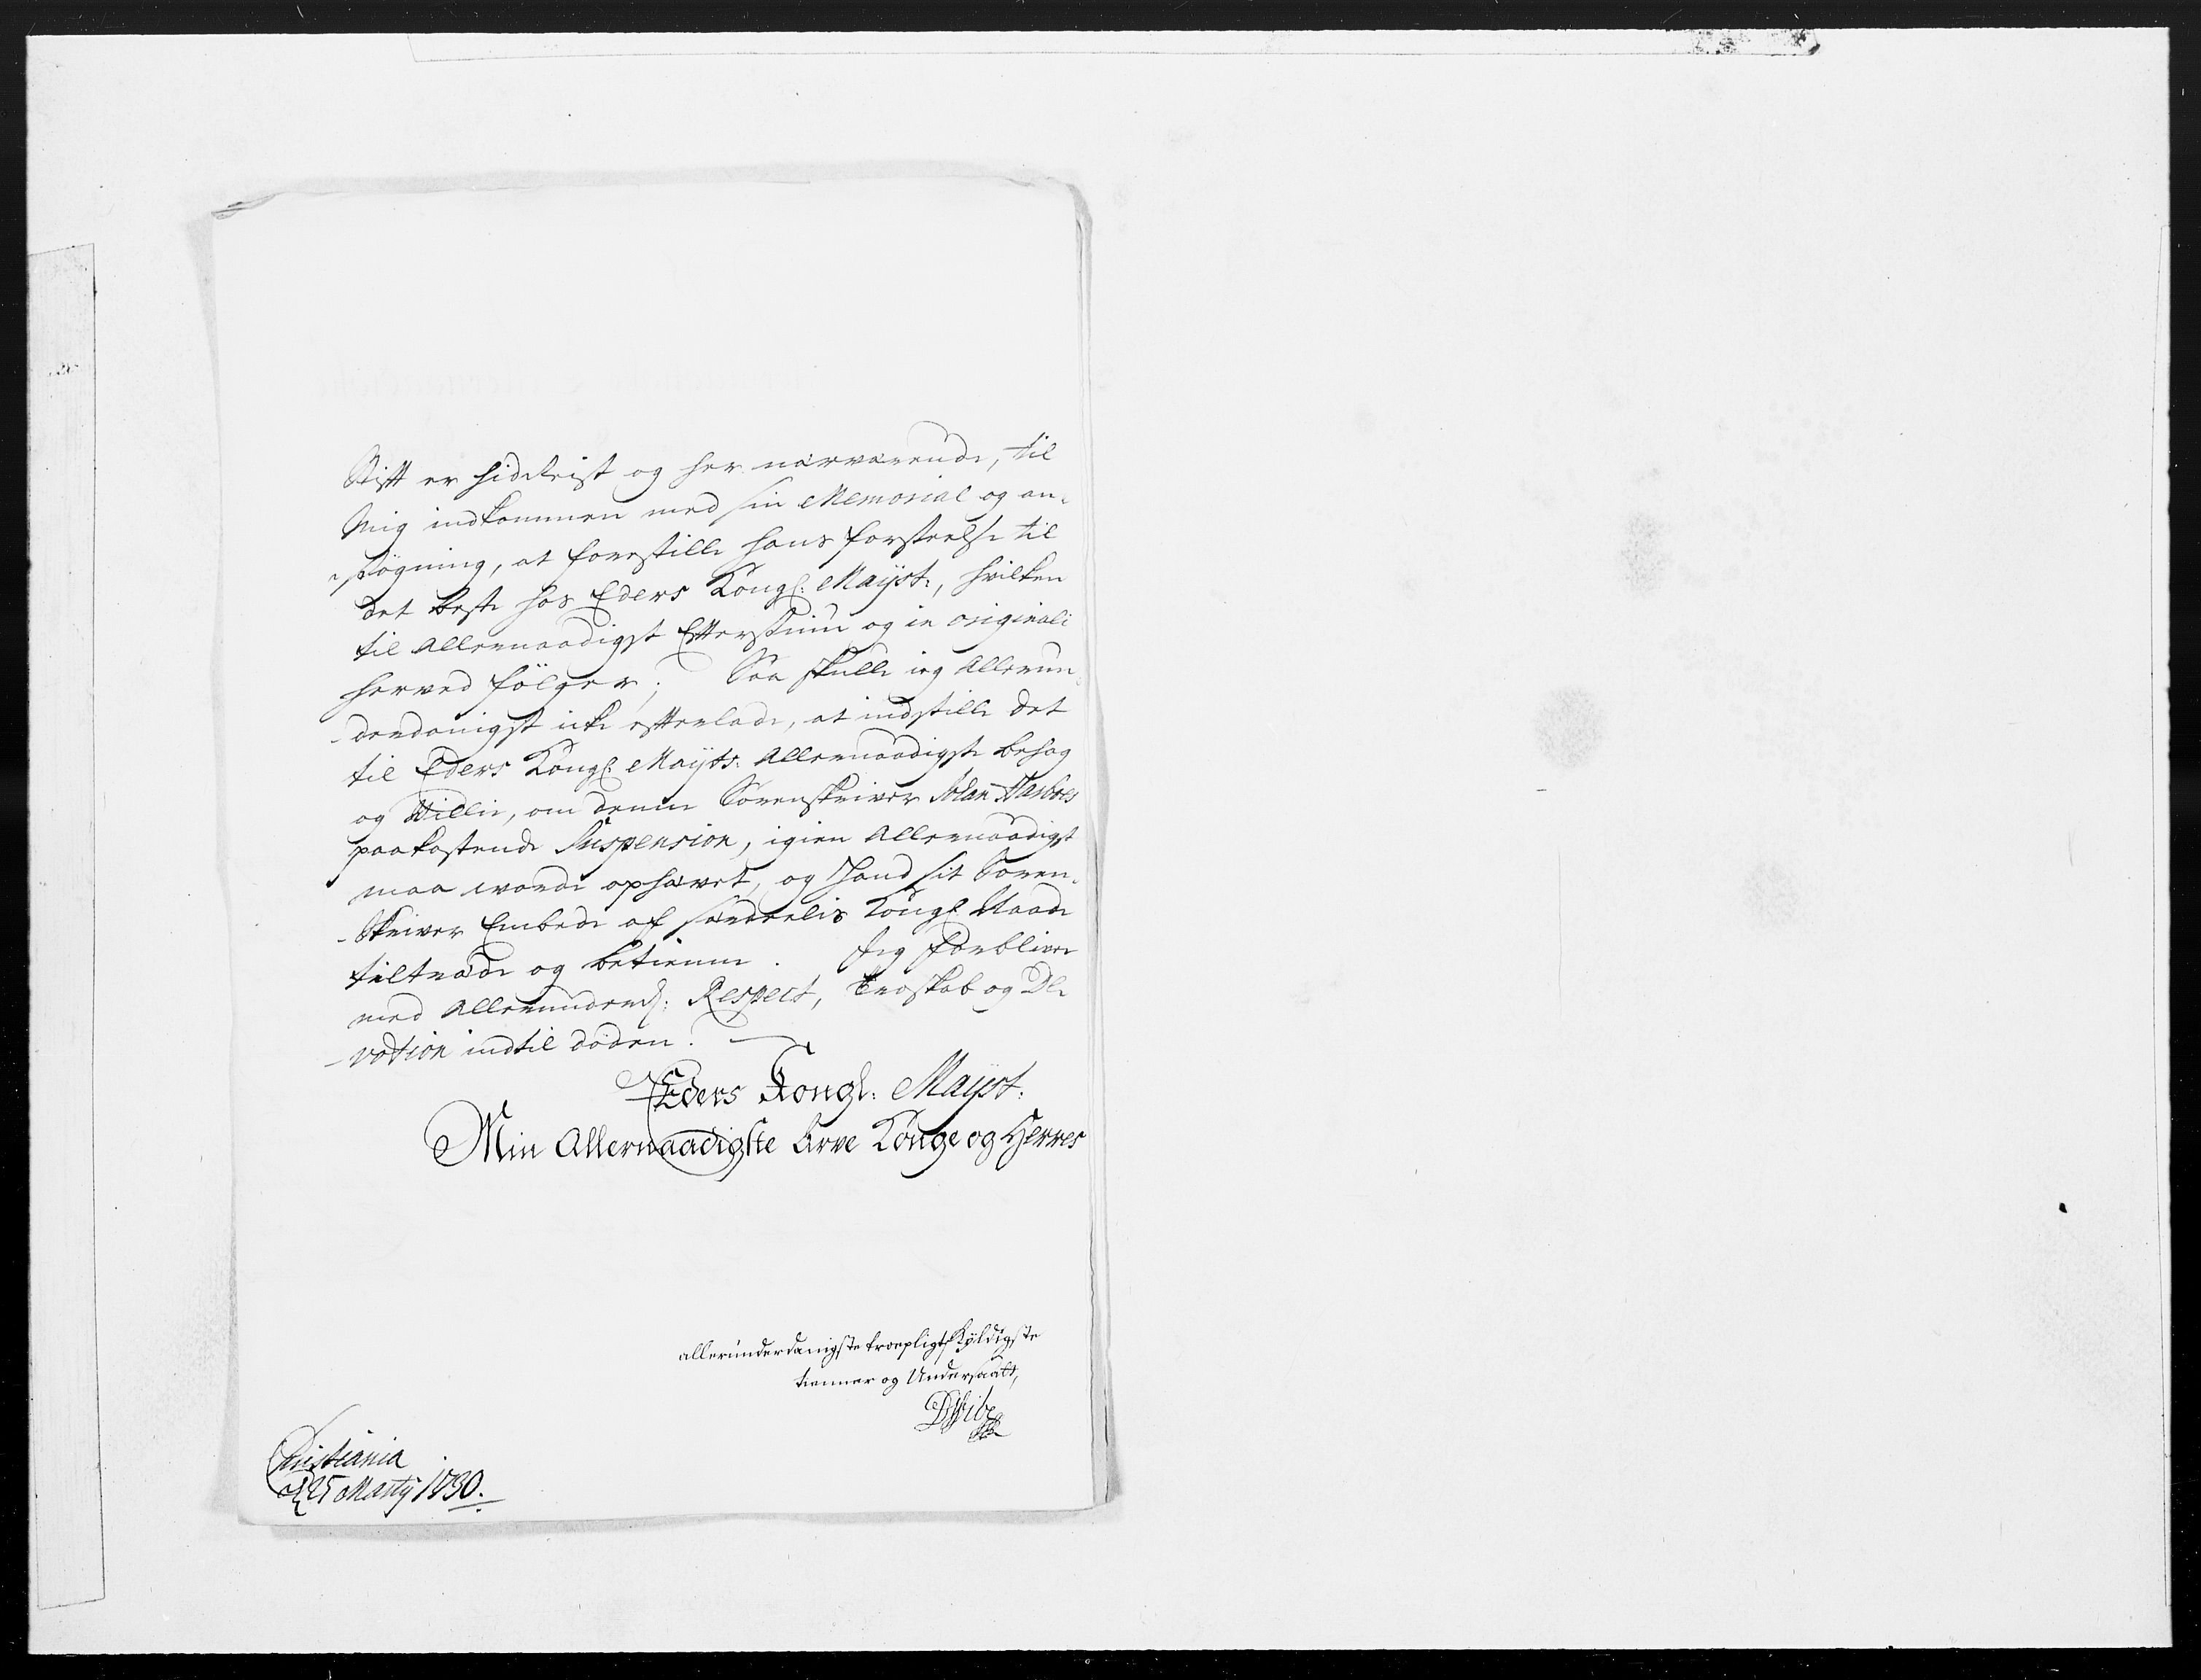 Stift er hidreist og her nærværende, til
Mig indkommen med sin Memorial og an-
søgning, at forestille hans forseelse til
det beste hos Eders Kongl: Mayst:, hvilken
til Allernaadigst Efftersiun og in originali
herved følger; Saa skulle ieg Allerun-
derdanigst icke efterlade, at indstille det
til Eders Kongl: Mayts: Allernaadigste behag
og Willie, om denne Sorenskriver
paakastende Suspension, igien Allernaadigst
maa worde ophævet, og Hand sit Soren-
Skriver Embede af særdeelis Kongl: Naade
tiltræde og betienne. Jeg forbliver
med Allerunderd: Respect, troskab og De-
votion indtil døden.
Eders Kongl: Mayst:
Min Allernaadigste Arve Konge og Herres
allerunderdanigste troepligtskyldigste
tienner og Undersaatt,
DWibe
Christiania
d 25 Martij 1730.